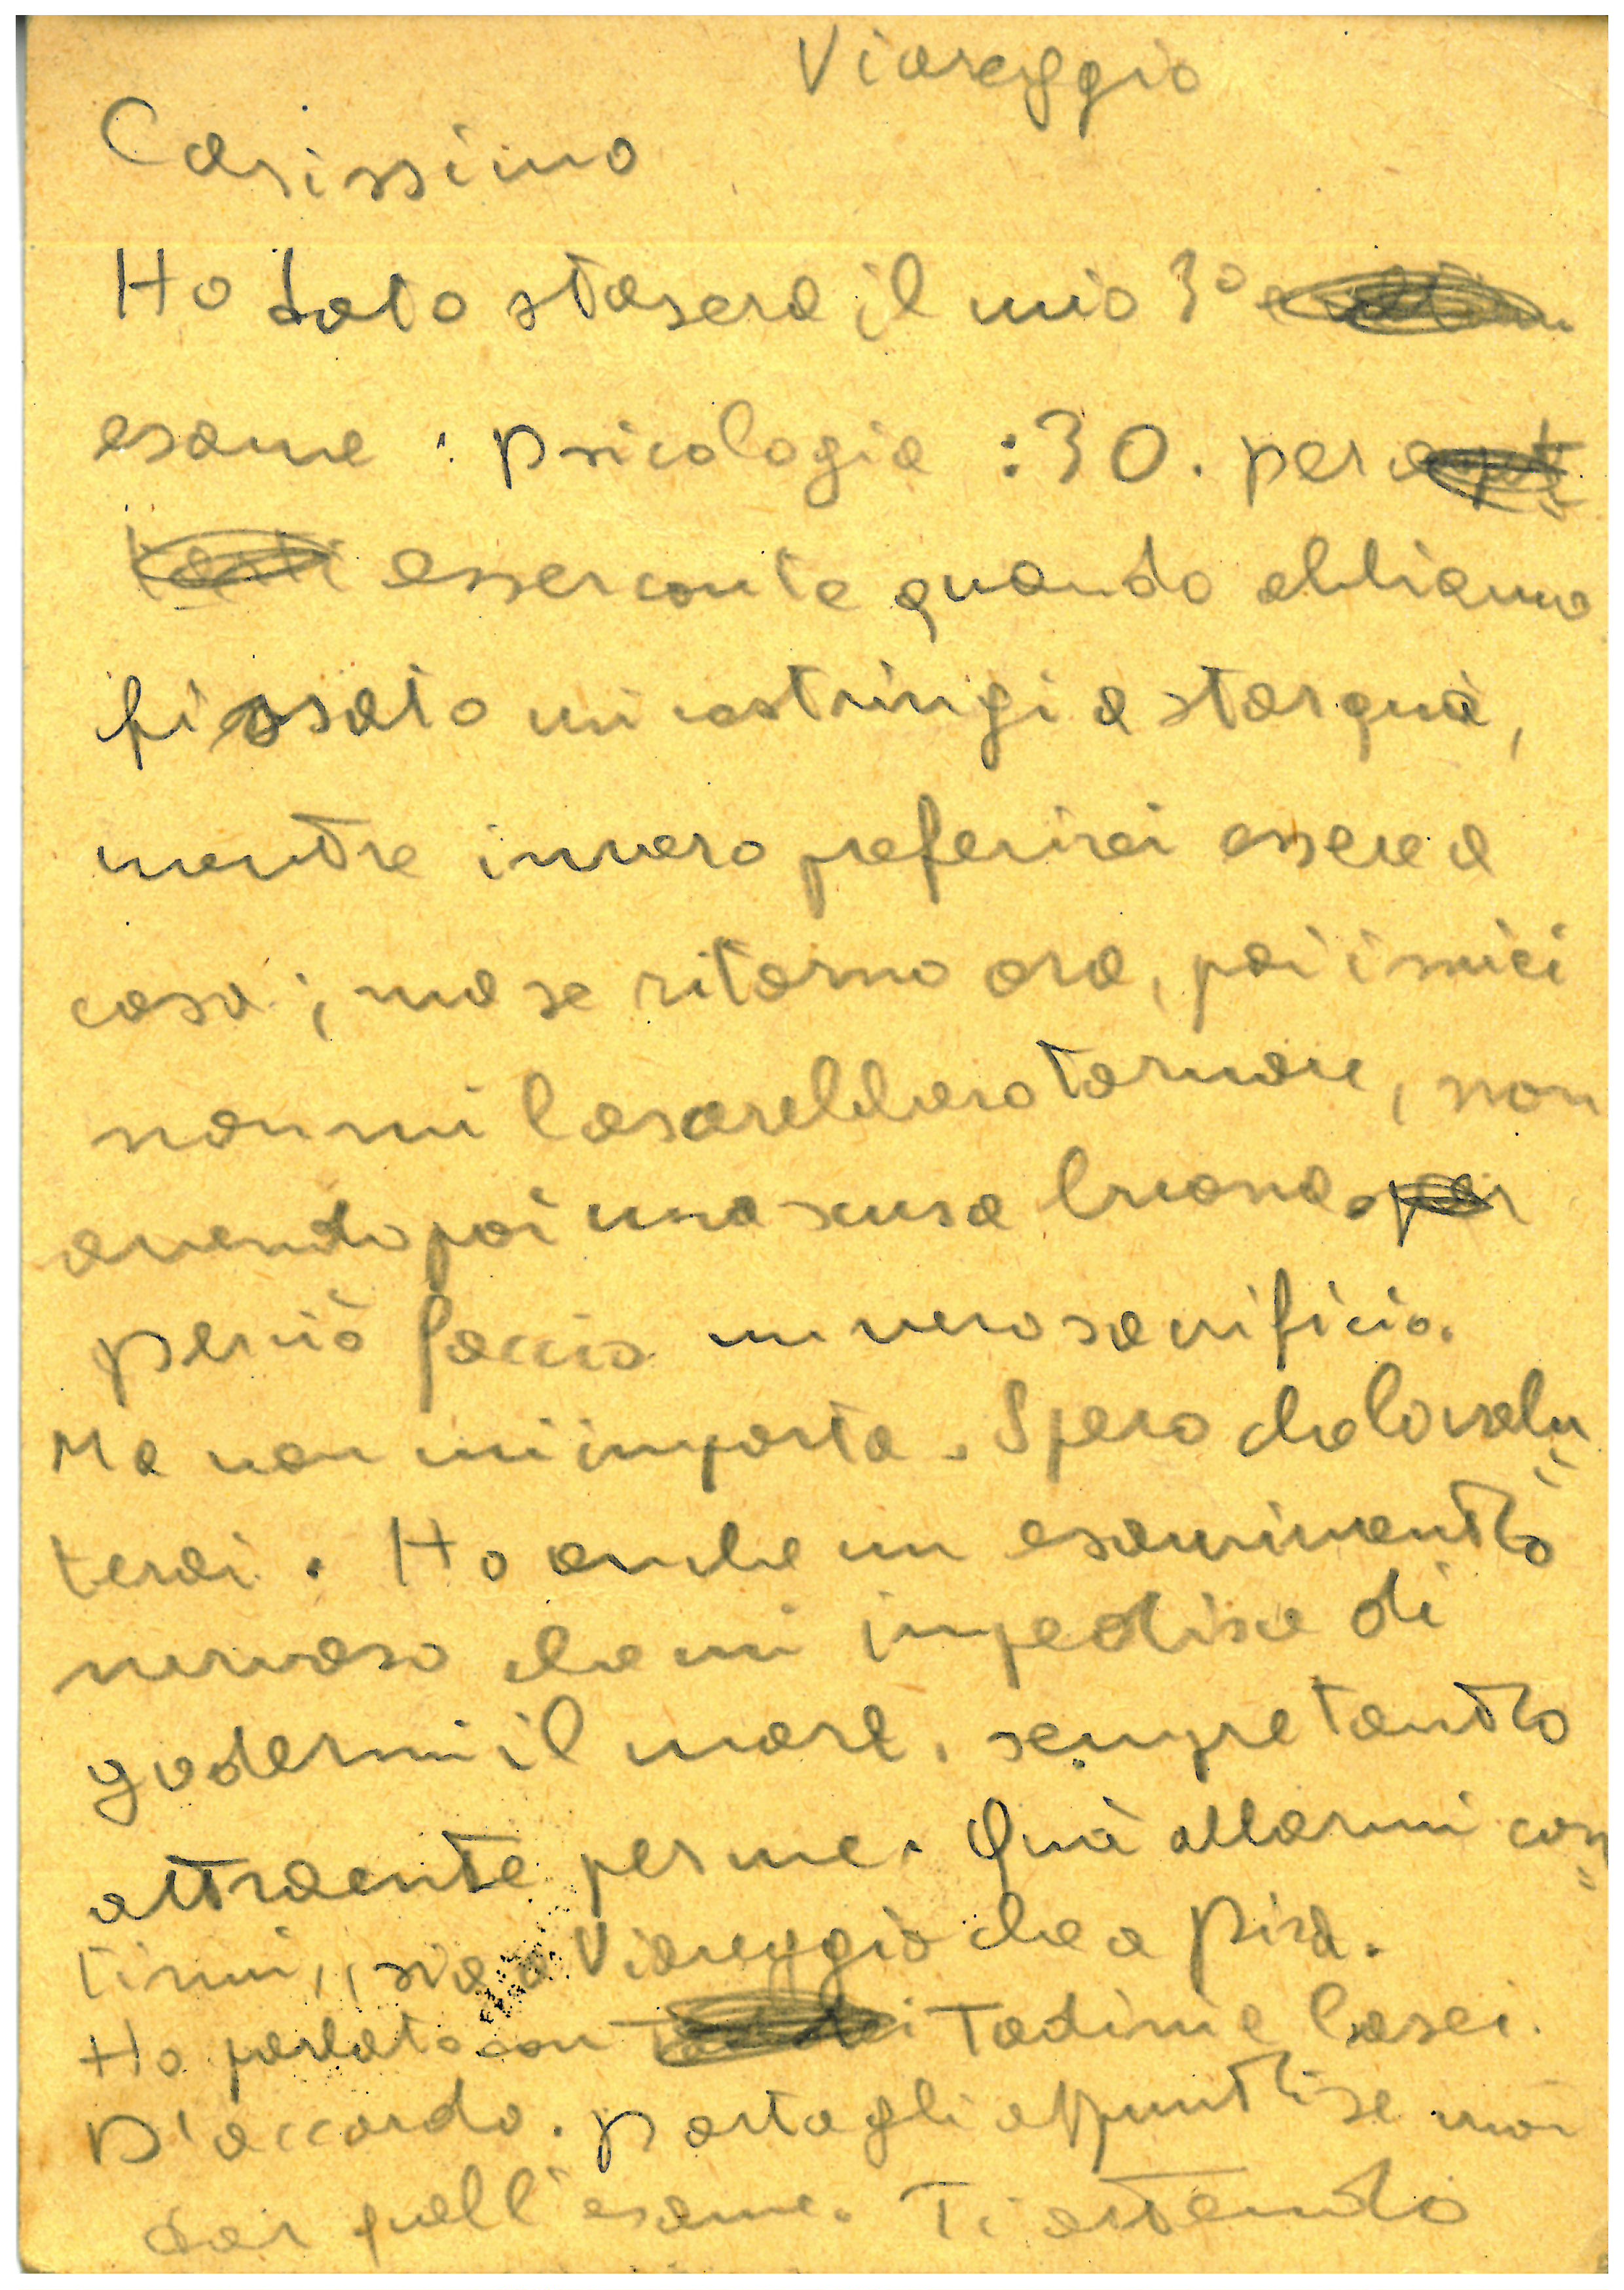 Viareggio
Carissimo
Ho dato stasera il mio 3°
esame : psicologia : 30. per
esser conte quando abbiamo
fissato mi costringi a star quà,
mentre invero preferirei essere a
casa ; ma se ritorno ora, poi i miei
non mi lascerebbero tornare, non
avendo poi una scusa buona.
perciò faccio un vero sacrificio.
Ma non mi importa. Spero che lo valu=
terai. Ho anche un esaurimento
nervoso che mi impedisce di
godermi il mare, sempre tanto
attraente per me. Quà allarmi con=
tinui, sia a Viareggio che a Pisa.
Ho parlato con Tadini e
D'accordo. porta gli appunti se vuoi
dar quell'esame. Ti attendo